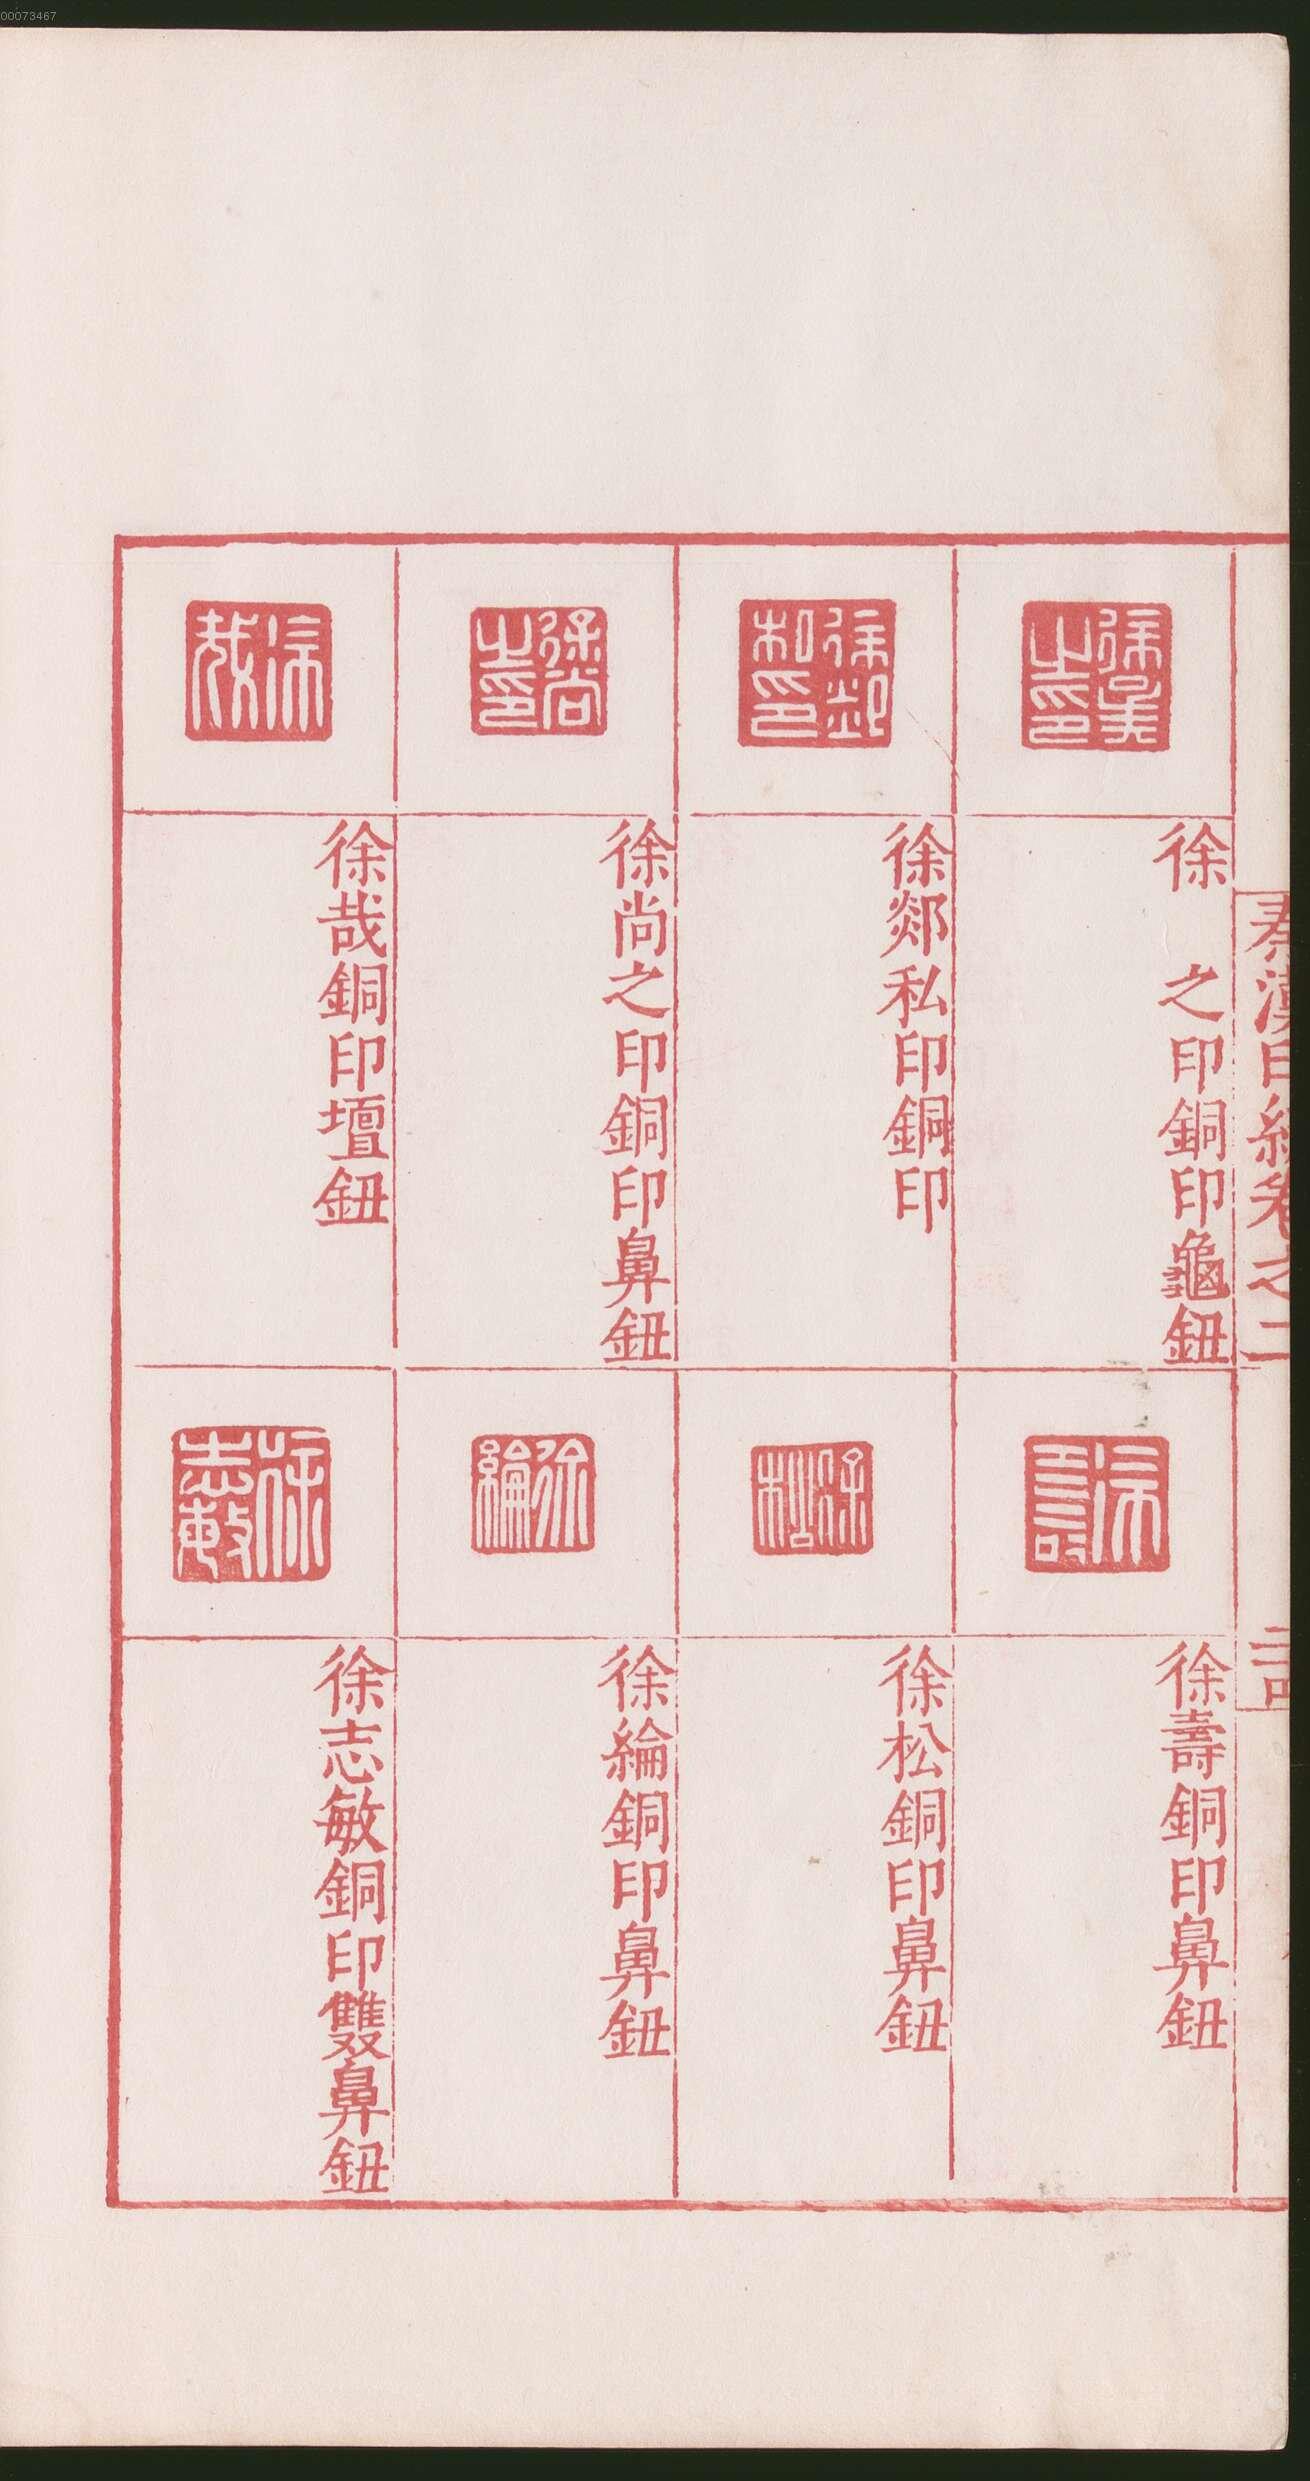 00073467
秦漢印統卷之二
徐　之印銅印龜鈕
徐郯私印銅印
徐尚之印銅印鼻鈕
徐哉銅印壇鈕
徐壽銅印鼻鈕
徐松銅印鼻鈕
徐綸銅印鼻鈕
徐志敏銅印雙鼻鈕